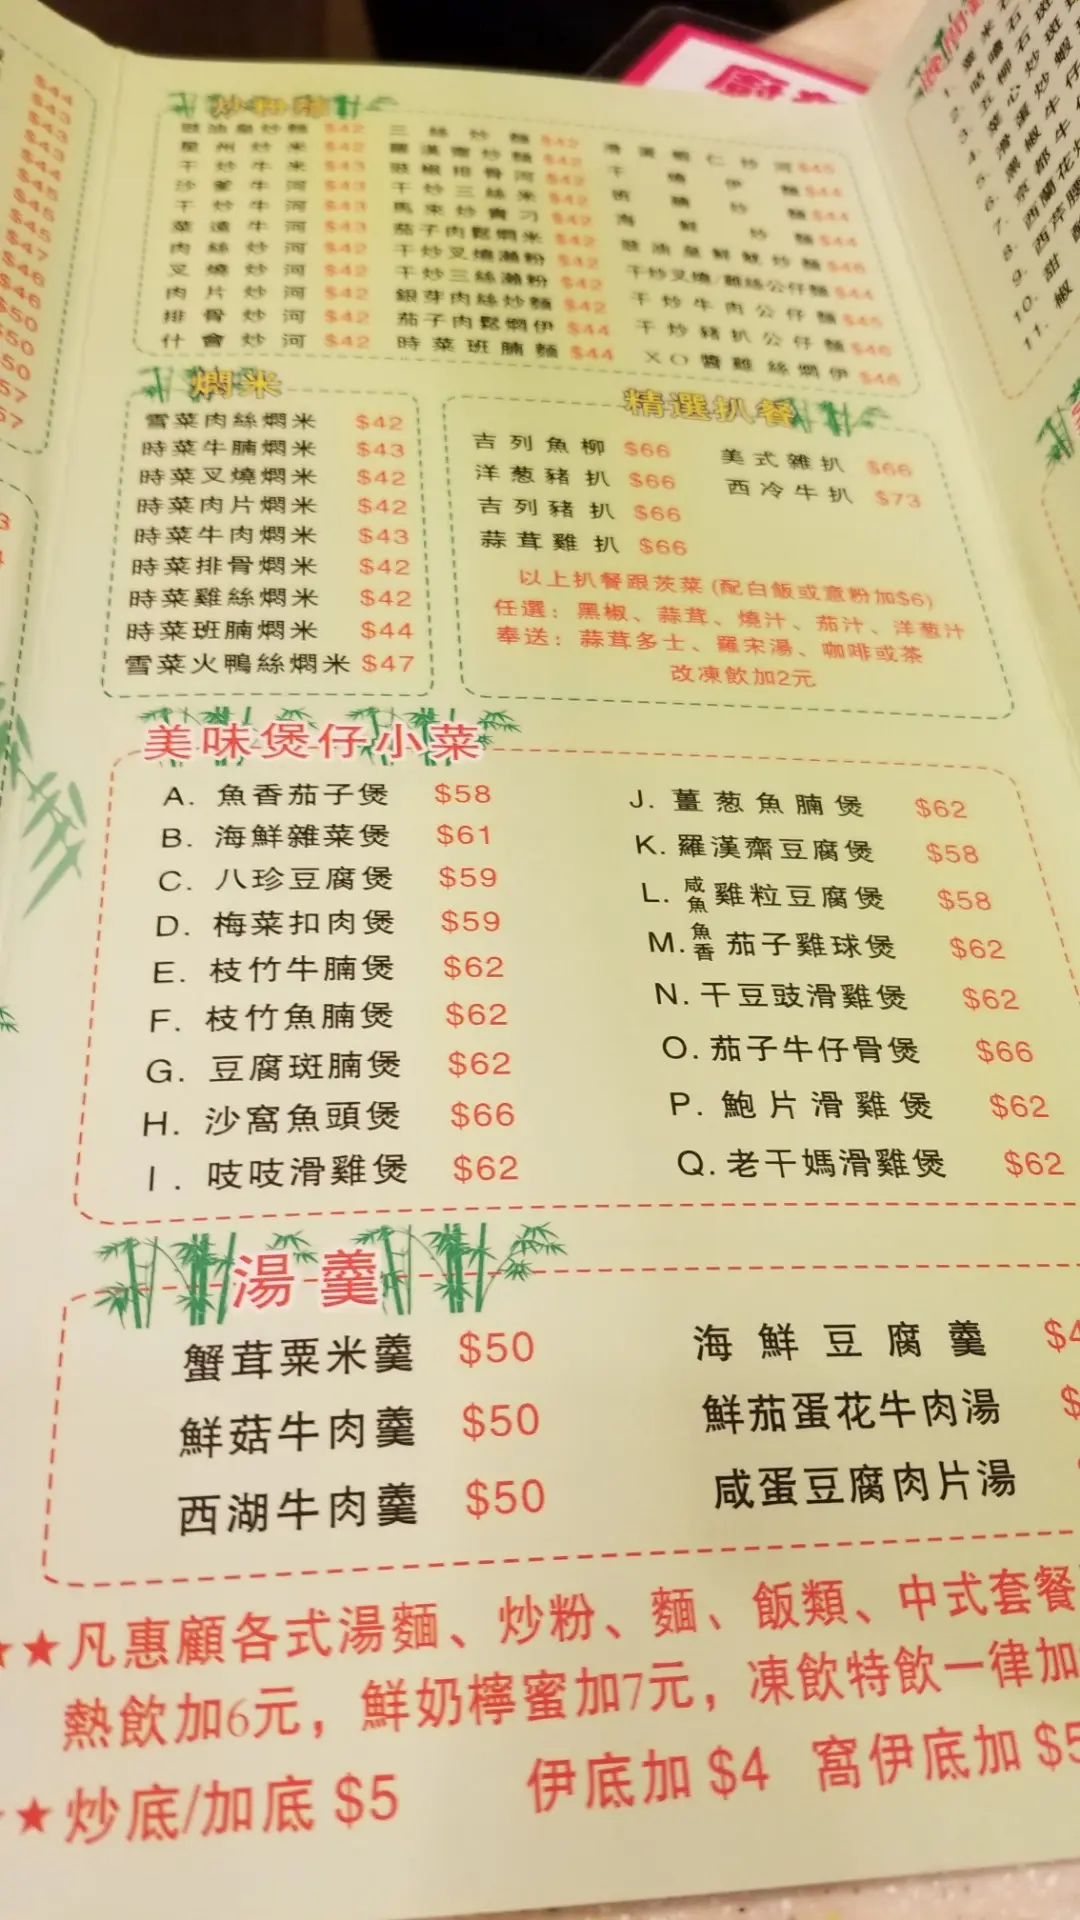 炒粉麵
豉油皇炒麵 $42
星州炒米 $42
干炒牛米 $43
沙爹牛河 $43
干炒牛河 $43
菜遠牛河 $43
肉絲炒河 $42
叉燒炒河 $42
肉片炒河 $42
排骨炒河 $42
什會炒河 $42
三絲炒麵 $42
羅漢齋炒麵 $42
豉椒排骨河 $42
干炒三絲米 $42
馬來炒貴刁 $42
茄子肉鬆燜米 $42
干炒叉燒瀨粉 $42
干炒三絲瀨粉 $42
銀芽肉絲炒麵 $42
茄子肉鬆燜伊 $44
時菜班腩麵 $44
滑蛋蝦仁炒河 $45
干燒伊麵 $44
班腩炒麵 $44
海鮮炒麵 $44
豉油皇鮮魷炒麵 $46
干炒叉燒/雞絲公仔麵 $44
干炒牛肉公仔麵 $45
干炒豬扒公仔麵 $46
XO醬雞絲燜伊 $46
燜米
雪菜肉絲燜米 $42
時菜牛腩燜米 $43
時菜叉燒燜米 $42
時菜肉片燜米 $42
時菜牛肉燜米 $43
時菜排骨燜米 $42
時菜雞絲燜米 $42
時菜班腩燜米 $44
雪菜火鴨絲燜米 $47
精選扒餐
吉列魚柳 $66
洋葱豬扒 $66
吉列豬扒 $66
蒜茸雞扒 $66
美式雜扒 $66
西冷牛扒 $73
以上扒餐跟茨菜 (配白飯或意粉加$6)
任選：黑椒、蒜茸、燒汁、茄汁、洋葱汁
奉送：蒜茸多士、羅宋湯、咖啡或茶
改凍飲加2元
美味煲仔小菜
A. 魚香茄子煲 $58
B. 海鮮雜菜煲 $61
C. 八珍豆腐煲 $59
D. 梅菜扣肉煲 $59
E. 枝竹牛腩煲 $62
F. 枝竹魚腩煲 $62
G. 豆腐斑腩煲 $62
H. 沙窩魚頭煲 $66
I. 吱吱滑雞煲 $62
J. 薑葱魚腩煲 $62
K. 羅漢齋豆腐煲 $58
L. 咸魚雞粒豆腐煲 $58
M. 魚香茄子雞球煲 $62
N. 干豆豉滑雞煲 $62
O. 茄子牛仔骨煲 $66
P. 鮑片滑雞煲 $62
Q. 老干媽滑雞煲 $62
湯羹
蟹茸粟米羹 $50
鮮菇牛肉羹 $50
西湖牛肉羹 $50
海鮮豆腐羹 $4
鮮茄蛋花牛肉湯 $
咸蛋豆腐肉片湯
★★凡惠顧各式湯麵、炒粉、麵、飯類、中式套餐
熱飲加6元，鮮奶檸蜜加7元，凍飲特飲一律加
★炒底/加底 $5 伊底加 $4 窩伊底加 $5